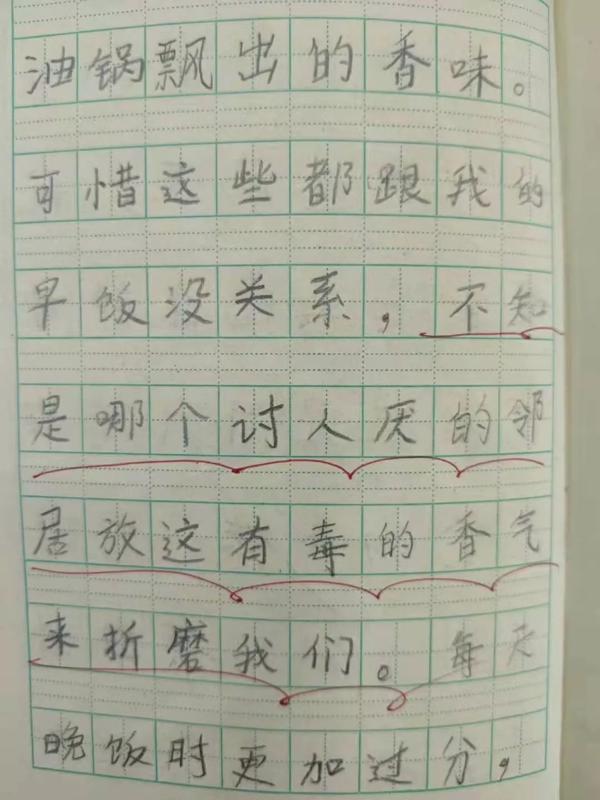 油锅飘出的香味。
可惜这些都跟我的
早饭没关系，不知
是哪个讨人厌的邻
居放这有毒的香气
来折磨我们。每天
晚饭时更加过分，